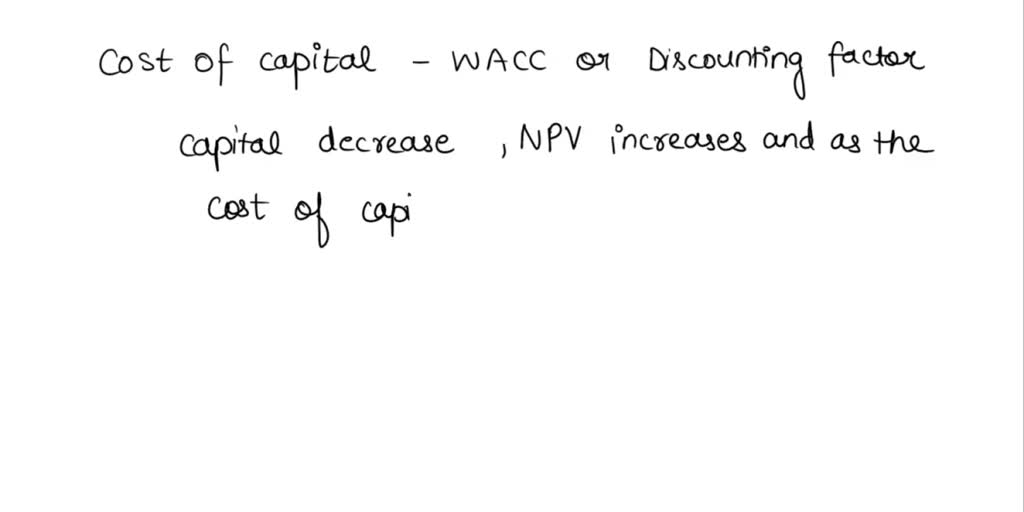 Cost of capital - WACC or Discounting factor
capital decrease , NPV increases and as the
cost of capi